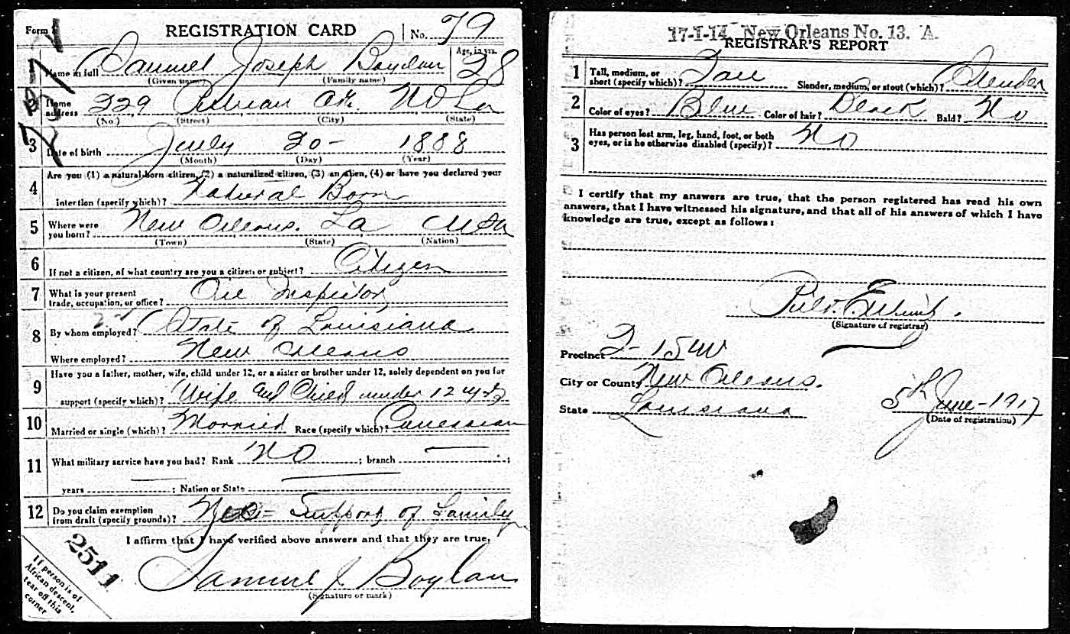 Form 1 REGISTRATION CARD No. 79
1 Name in full Samuel Joseph Boylan Age, in yrs. 28
(Given name) (Family name)
2 Home address 229 NO La
(No.) (Street) (City) (State)
3 Date of birth July 20- 1888
(Month) (Day) (Year)
4 Are you (1) a natural-born citizen, (2) a naturalized citizen, (3) an alien, (4) or have you declared your
intention (specify which)? Natural Born
5 Where were you born? New Orleans. La USA
(Town) (State) (Nation)
6 If not a citizen, of what country are you a citizen or subject? Citizen
7 What is your present trade, occupation, or office? Oil Inspector
8 By whom employed? State of Louisiana
Where employed? New Orleans
9 Have you a father, mother, wife, child under 12, or a sister or brother under 12, solely dependent on you for
support (specify which)? Wife and Child under 12 yrs
10 Married or single (which)? Married Race (specify which)? Caucasian
11 What military service have you had? Rank NO ; branch ;
years ; Nation or State
12 Do you claim exemption from draft (specify grounds)? Yes = Support of Family
I affirm that I have verified above answers and that they are true.
Samuel J Boylan
(Signature or mark)
2511
If person is of
African descent,
tear off this
corner
17-1-14 New Orleans No. 13. A.
REGISTRAR'S REPORT
1 Tall, medium, or short (specify which)? Tall Slender, medium, or stout (which)? Slender
2 Color of eyes? Blue Color of hair? Black Bald? No
3 Has person lost arm, leg, hand, foot, or both eyes, or is he otherwise disabled (specify)? NO
I certify that my answers are true, that the person registered has read his own
answers, that I have witnessed his signature, and that all of his answers of which I have
knowledge are true, except as follows:
(Signature of registrar)
Precinct 2-15W
City or County New Orleans.
State Louisiana 5th June-1917
(Date of registration)